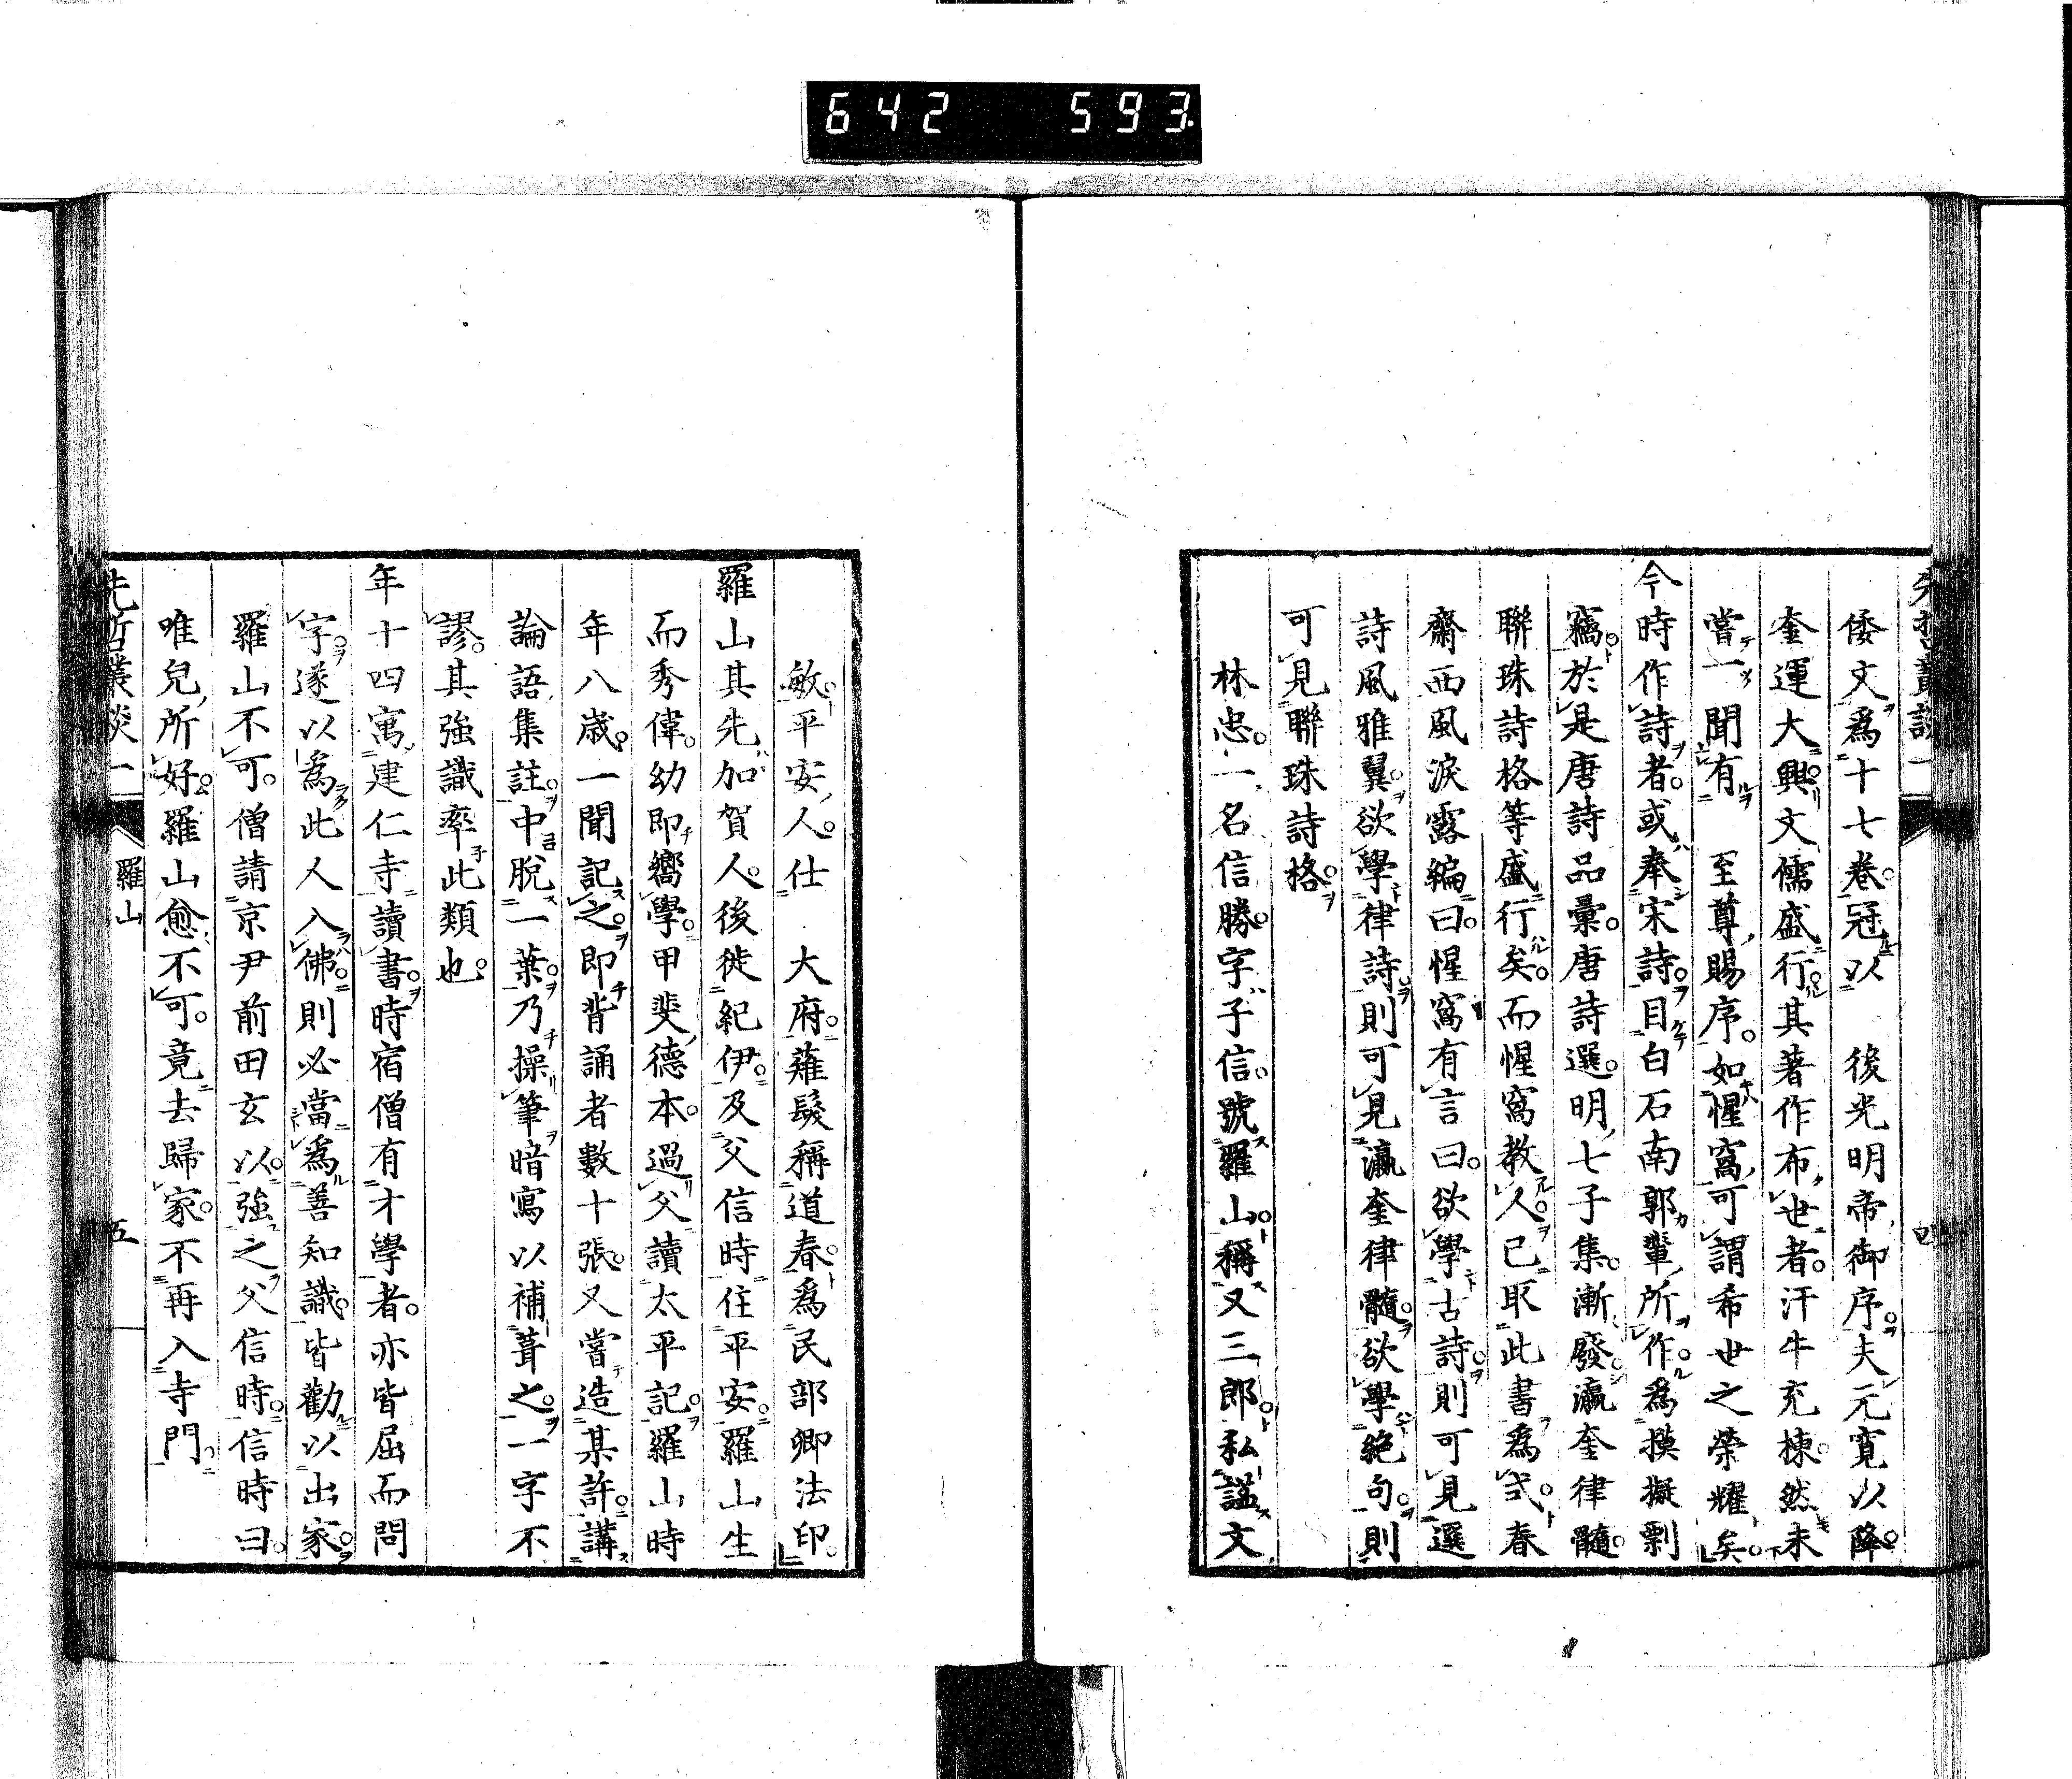 642 593
先哲叢談一
倭文爲十七卷冠以 後光明帝御序夫元寛以降
奎運大興文儒盛行其著作布世者汗牛充棟然未
嘗一聞有 至尊賜序如惺窩可謂希世之榮耀矣
今時作詩者或奉宋詩目白石南郭輩所作爲摸擬剽
竊於是唐詩品彙唐詩選明七子集漸廢瀛奎律髓
聯珠詩格等盛行矣而惺窩教人已取此書爲式春
齋西風淚露編曰惺窩有言曰欲學古詩則可見選
詩風雅翼欲學律詩則可見瀛奎律髓欲學絶句則
可見聯珠詩格
林忠一名信勝字子信號羅山稱又三郎私諡文
四
敏平安人仕 大府薙髮稱道春爲民部卿法印
羅山其先加賀人後徙紀伊及父信時住平安羅山生
而秀偉幼即嚮學甲斐德本過父讀太平記羅山時
年八歳一聞記之即背誦者數十張又嘗造某許講
論語集註中脱一葉乃操筆暗寫以補葺之一字不
謬其強識率此類也
年十四寓建仁寺讀書時宿僧有才學者亦皆屈而問
字遂以爲此人入佛則必當爲善知識皆勸以出家
羅山不可僧請京尹前田玄以強之父信時信時曰
唯兒所好羅山愈不可竟去歸家不再入寺門
先哲叢談一
羅山
五